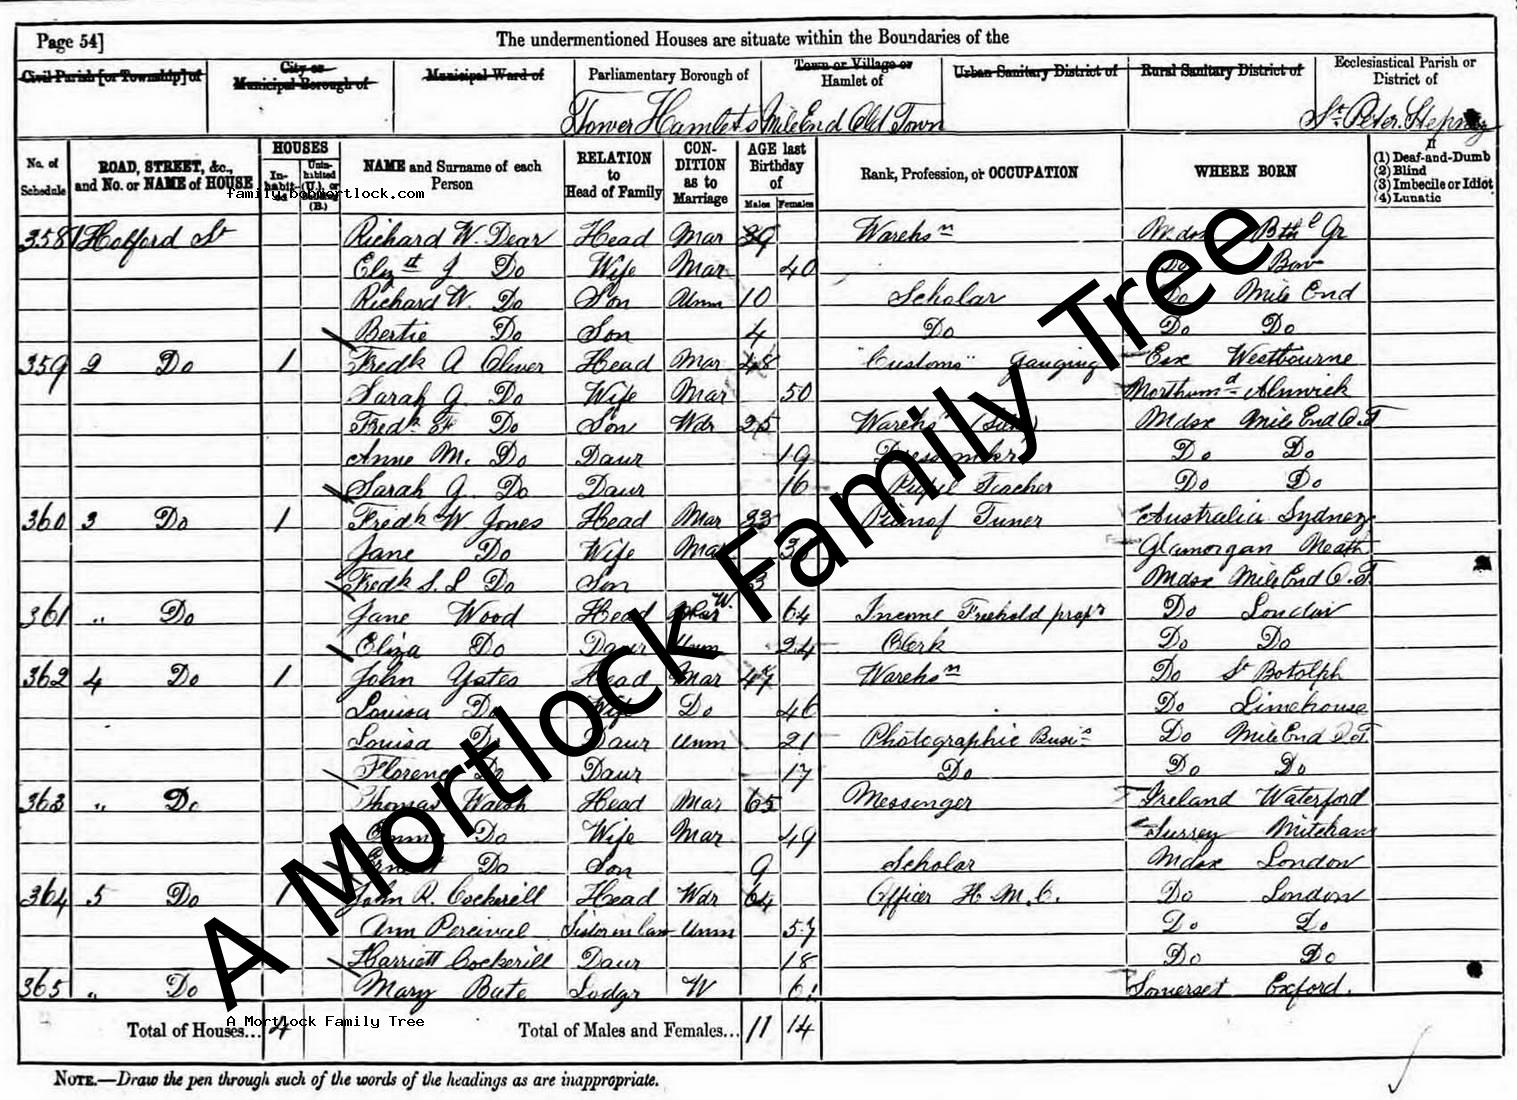 Page 54]
The undermentioned Houses are situate within the Boundaries of the
Civil Parish [or Township] of
City or Municipal Borough of
Municipal Ward of
Parliamentary Borough of
Town or Village or Hamlet of
Urban Sanitary District of
Rural Sanitary District of
Ecclesiastical Parish or District of
Tower Hamlets Mile End Old Town St. Peter. Stepney
No. of Schedule
ROAD, STREET, &c., and No. or NAME of HOUSE
HOUSES
Inhabited
Uninhabited (U.), or Building (B.)
NAME and Surname of each Person
RELATION to Head of Family
CONDITION as to Marriage
AGE last Birthday of
Males Females
Rank, Profession, or OCCUPATION
WHERE BORN
If
(1) Deaf-and-Dumb
(2) Blind
(3) Imbecile or Idiot
(4) Lunatic
family.bobmortlock.com
358 1 Holford St Richard W. Dear Head Mar 39 Warehsn Gr
Elizth J Do Wife Mar 40 Do Bow
Richard W. Do Son Unm 10 Scholar Do Mile End
Bertie Do Son 4 Do Do Do
359 2 Do 1 Fredk A Oliver Head Mar 48 "Customs" gauging Westbourne
Sarah J. Do Wife Mar 50 Northumd Alnwick
Fredk Do Son Wdr 25 Warehs Mdsx Mile End O.T
Anne M. Do Daur 19 Dressmaker Do Do
Sarah J. Do Daur 16 Pupil Teacher Do Do
360 3 Do 1 Fredk W Jones Head Mar 33 Pianof Tuner Australia Sydney
Jane Do Wife Mar Glamorgan Neath
Fredk S. L Do Son 3 Mdsx Mile End O.T
361 " Do Jane Wood Head W. 64 Income Freehold propy Do London
Eliza Do Daur Unm 24 Clerk Do Do
362 4 Do 1 John Yates Head Mar 47 Warehsn Do St Botolph
Louisa Do Wife Do 46 Do Limehouse
Louisa Do Daur Unm 21 Photographic Busis Do Mile End O.T
Florence Do Daur 17 Do Do Do
363 " Do Thomas Walsh Head Mar 65 Messenger Ireland Waterford
Emma Do Wife Mar 49 Surrey Mitcham
Ernest Do Son 9 Scholar Mdsx London
364 5 Do 1 John R. Cockerill Head Wdr 64 Officer H. M. C. Do London
Ann Percival Sister in law Unm 57 Do Do
Harriett Cockerill Daur 18 Do Do
365 " Do Mary Bate Lodgr W 61 Somerset Exford.
Total of Houses... 4 Total of Males and Females... 11 14
A Mortlock Family Tree
NOTE.—Draw the pen through such of the words of the headings as are inappropriate.
A Mortlock Family Tree